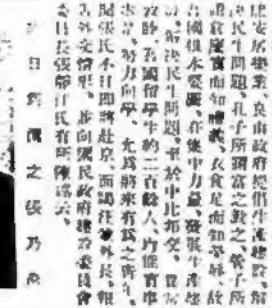 安居樂業、良由政府提倡生產建設解
決民生問題、孔子所謂富之教之、管子所
謂倉廩實而知禮義、衣食足而知榮辱、故
吾國根本要圖、在集中力量、發展生產建
設、解決民生問題、至於中比邦交、
敦睦、吾國留學生約二百餘人、均能
努力向學、尤為將來有為之青年、
聞張氏不日即將赴京、面謁汪兼外長、報
告外交情形、並向國民政府建設委員會
委員長張靜江氏有所陳述云、
日 之張乃燕